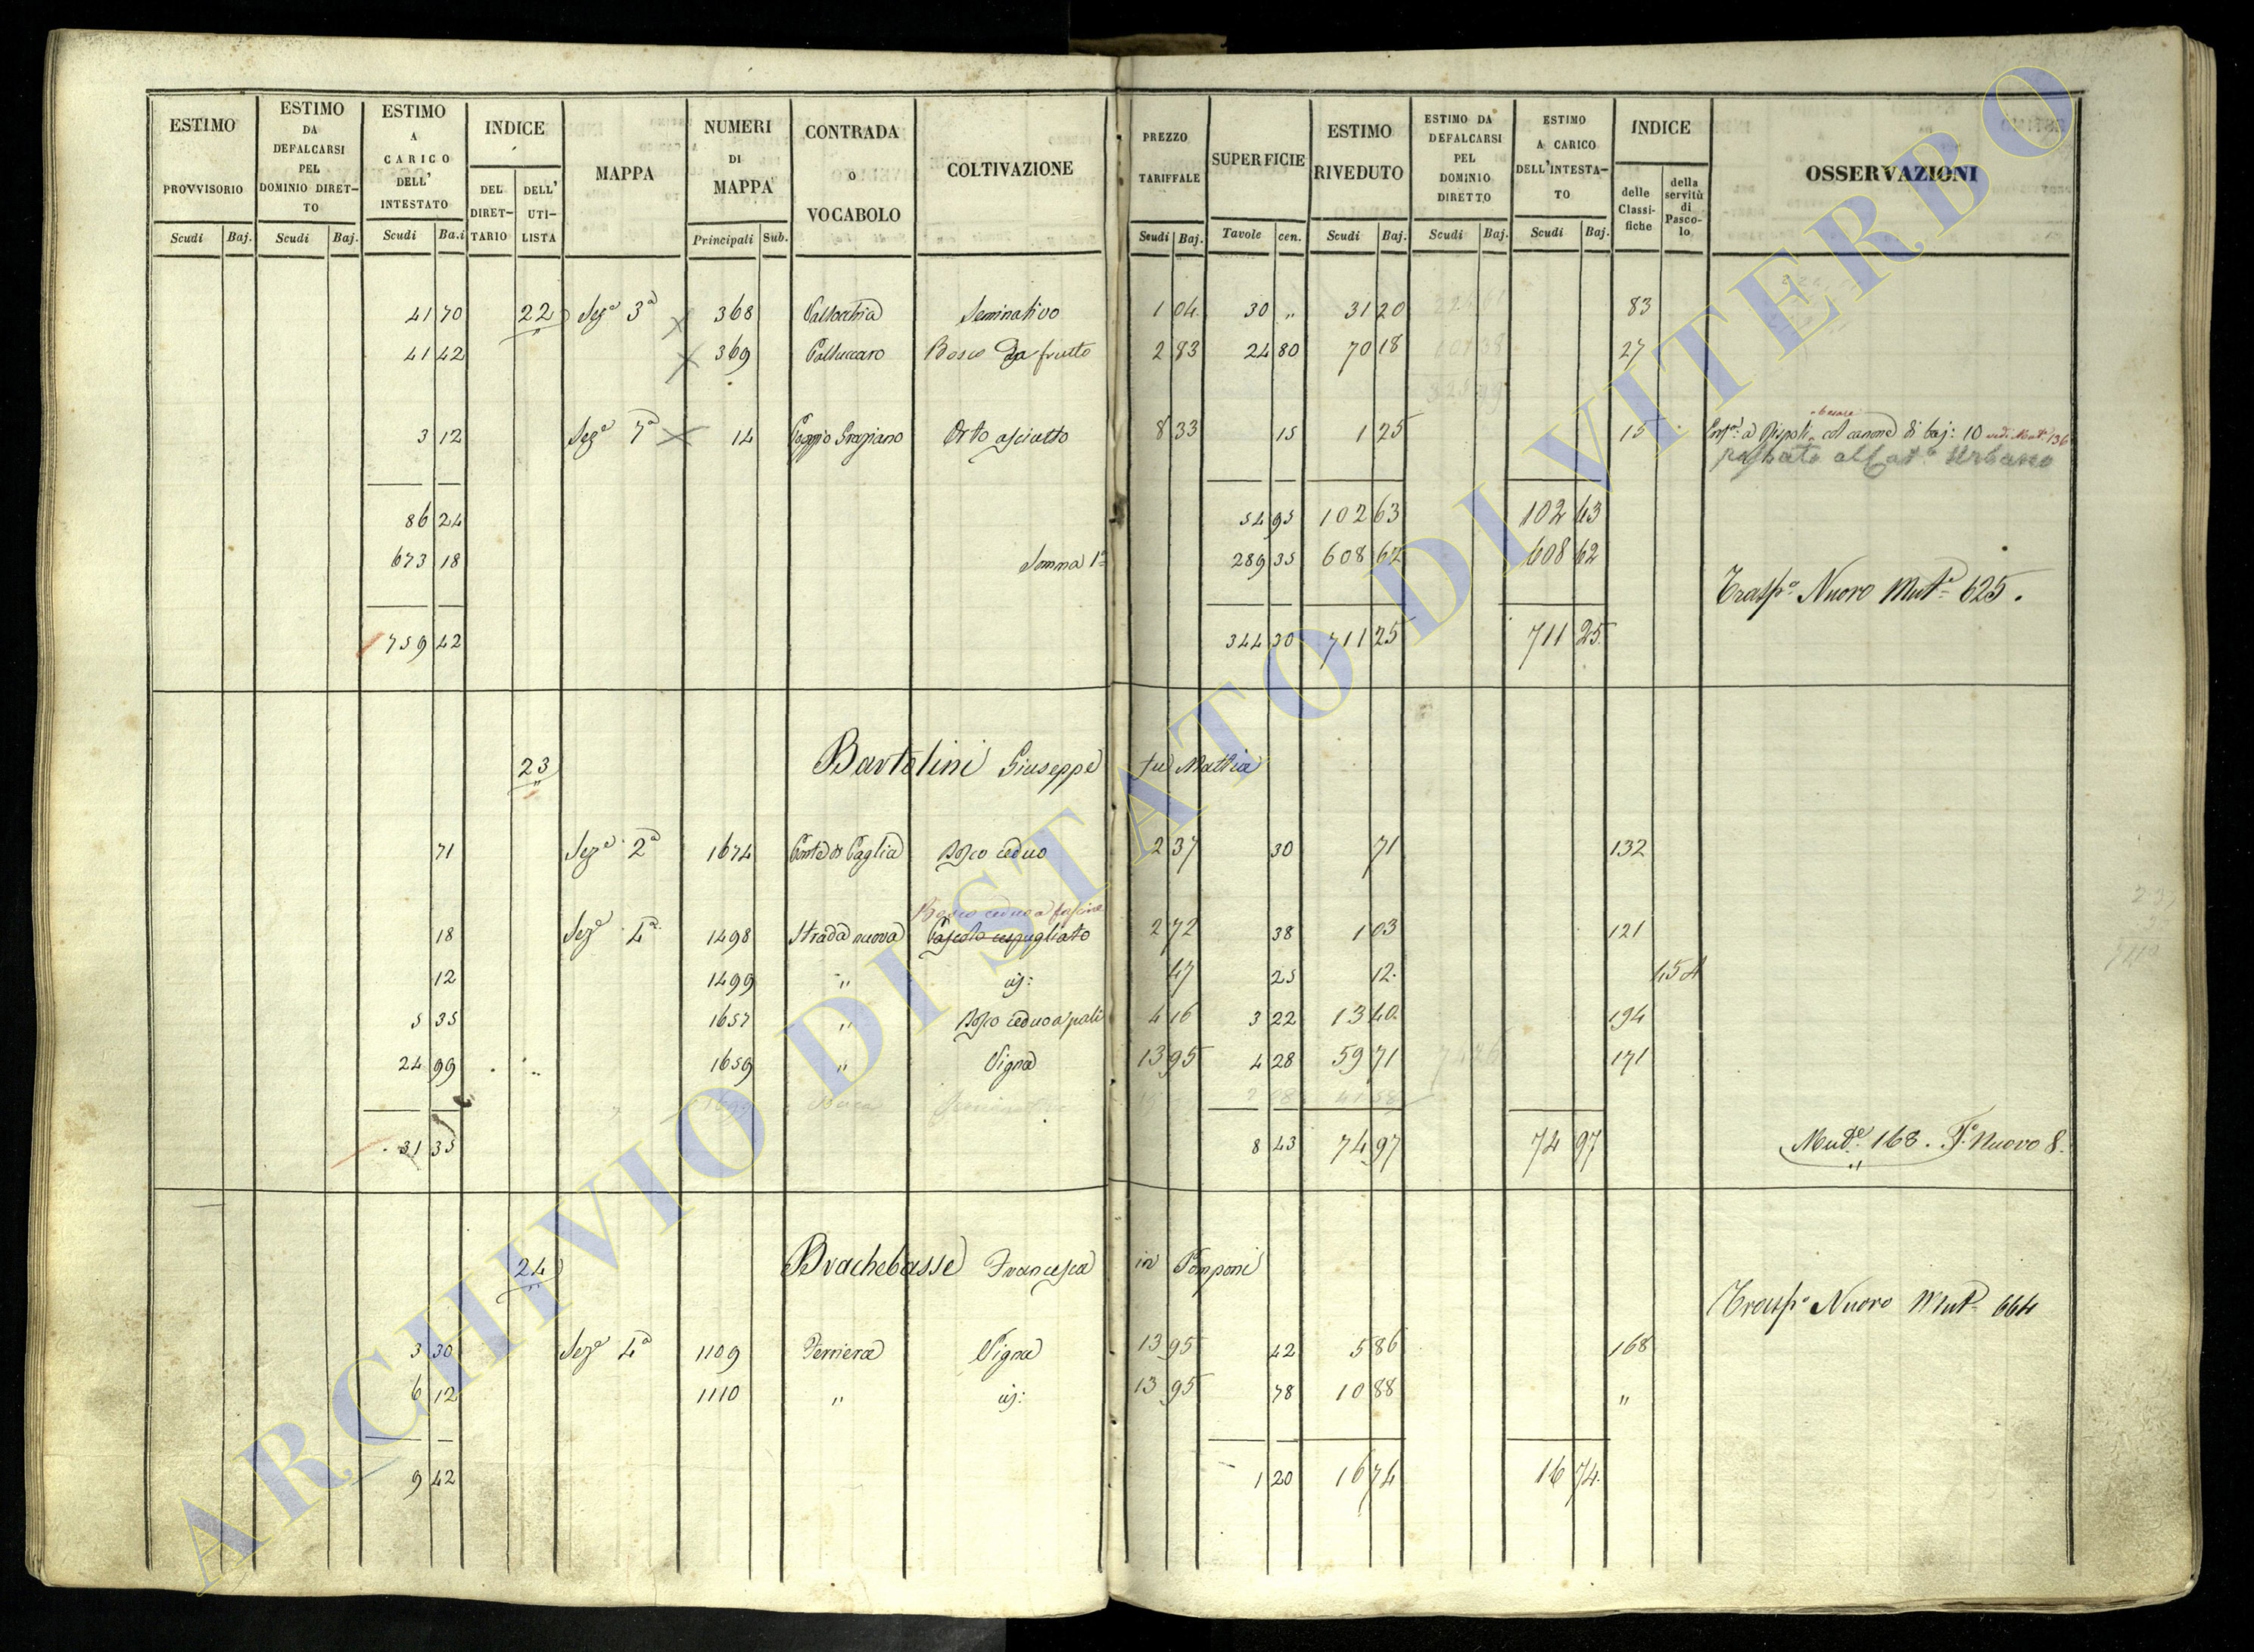 ESTIMO PROVVISORIO Scudi Baj. | ESTIMO DA DEFALCARSI PEL DOMINIO DIRET-TO Scudi Baj. | ESTIMO A CARICO DELL' INTESTATO Scudi Baj. | INDICE DEL DIRET-TARIO | DELL' UTI-LISTA | MAPPA | NUMERI DI MAPPA Principali Sub. | CONTRADA O VOCABOLO | COLTIVAZIONE | PREZZO TARIFFALE Scudi Baj. | SUPERFICIE Tavole cen. | ESTIMO RIVEDUTO Scudi Baj. | ESTIMO DA DEFALCARSI PEL DOMINIO DIRETTO Scudi Baj. | ESTIMO A CARICO DELL'INTESTA-TO Scudi Baj. | INDICE delle Classi-fiche | della servitù di Pasco-lo | OSSERVAZIONI
41 70 22 Sez.e 3a 368 Seminativo 1 04 30 " 31 20 83
41 42 369 Bosco da frutto 2 83 24 80 70 18 27
3 12 Sez.e 7a 14 Poggio Graziano Orto asciutto 8 33 15 1 25 15 col canone di baj: 10 vedi Mut.e 136
passato al Cat.o Urbano
86 24 54 95 102 63 102 63
673 18 Somma 1a 289 35 608 62 608 62
Trasp.o Nuovo Mut.e 625.
759 42 344 30 711 25 711 25
23 Bartolini Giuseppe fu Mattia
71 Sez.e 2a 1674 Ponte di Paglia Bosco ceduo 2 37 30 71 132
Bosco ceduo a fascine
18 Sez.e 4a 1498 Strada nuova Pascolo cespugliato 2 72 38 1 03 121
12 1499 " id: 47 25 12 454
5 35 1657 " Bosco ceduo a pali 4 16 3 22 13 40 194
24 99 1659 " Vigna 13 95 4 28 59 71 171
31 35 8 43 74 97 74 97 Mut.e 168. T.o Nuovo 8.
24 Brachebasse Francesca in Pomponi
Trasp.o Nuovo Mut.e 664
3 30 Sez.e 4a 1109 Ferriera Vigna 13 95 42 5 86 168
6 12 1110 " id: 13 95 78 10 88 "
9 42 1 20 16 74 16 74
ARCHIVIO DI STATO DI VITERBO